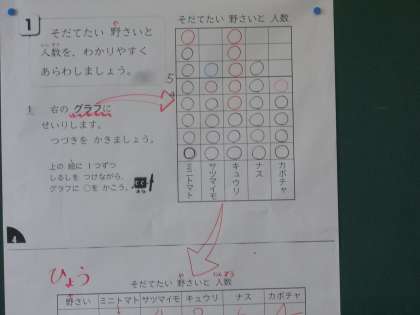 1
そだてたい 野さいと
人数を、わかりやすく
あらわしましょう。
1 右の グラフに
せいりします。
つづきを かきましょう。
上の 絵に 1つずつ
しるしを つけながら、
グラフに ○を かこう。
そだてたい 野さいと 人数
5
4
ミニトマト
サツマイモ
キュウリ
ナス
カボチャ
4
ひょう
そだてたい 野さいと 人数
野さい ミニトマト サツマイモ キュウリ ナス カボチャ